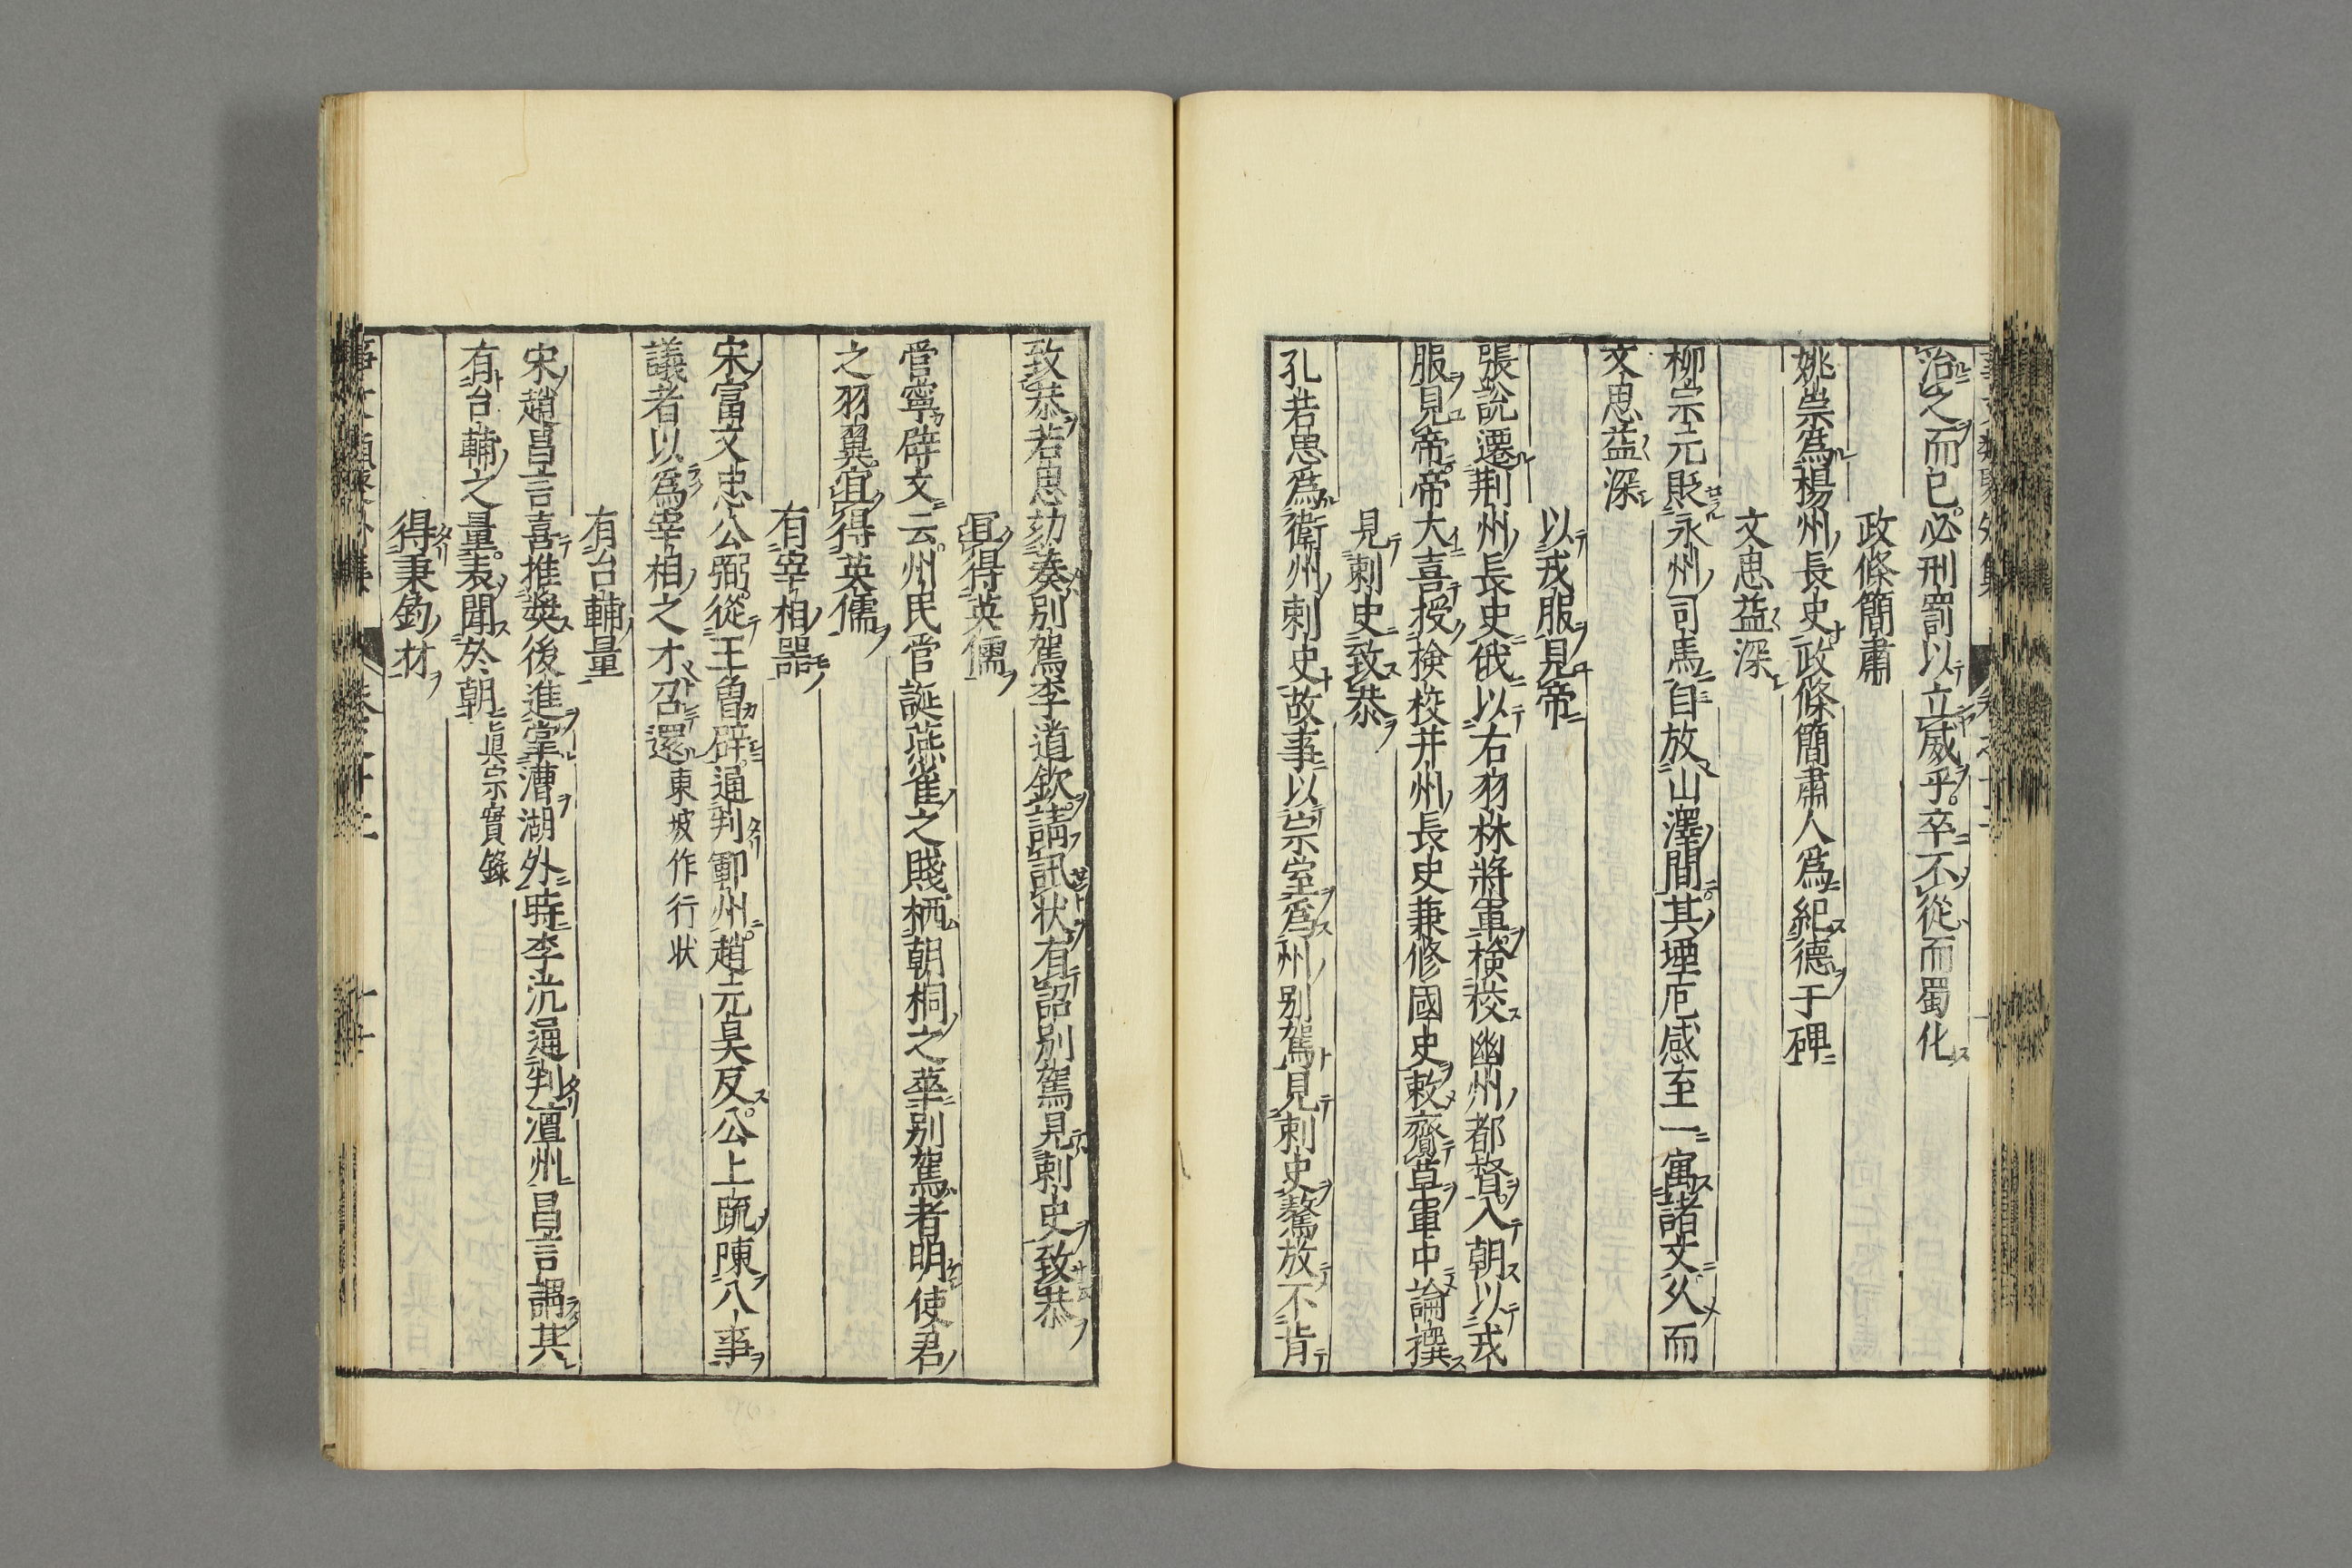 治之而已必刑罰以立威乎卒不從而蜀化
政條簡肅
姚崇爲楊州長史政條簡肅人爲紀德于碑
文思益深
柳宗元貶永州司馬自放山澤間其堙厄感至一寓諸文父而
文思益深
以戎服見帝
張說遷荆州長史俄以右羽林將軍検校幽州都督入朝以戎
服見帝帝大喜授検校并州長史兼修國史敕齎草軍中論撰
見剌史致恭
孔若思爲衛州剌史故事以宗室爲州別駕見剌史驁放不肯
致恭若思劾奏別駕李道欽請訊状有詔別駕見剌史致恭
冝得英儒
甞寧辟文云州民甞誕燕雀之賤栖朝桐之華別駕者明使君
之羽翼冝得英儒
有宰相噐
宋富文忠公弼從王魯辟通判鄆州趙元昊反公上疏陳八事
議者以爲宰相之才召還東坡作行状
有台輔量
宋趙昌言喜推奬後進掌漕湖外時李沆通判潭州昌言謂其
有台輔之量表聞於朝眞宗實錄
得秉鈞材